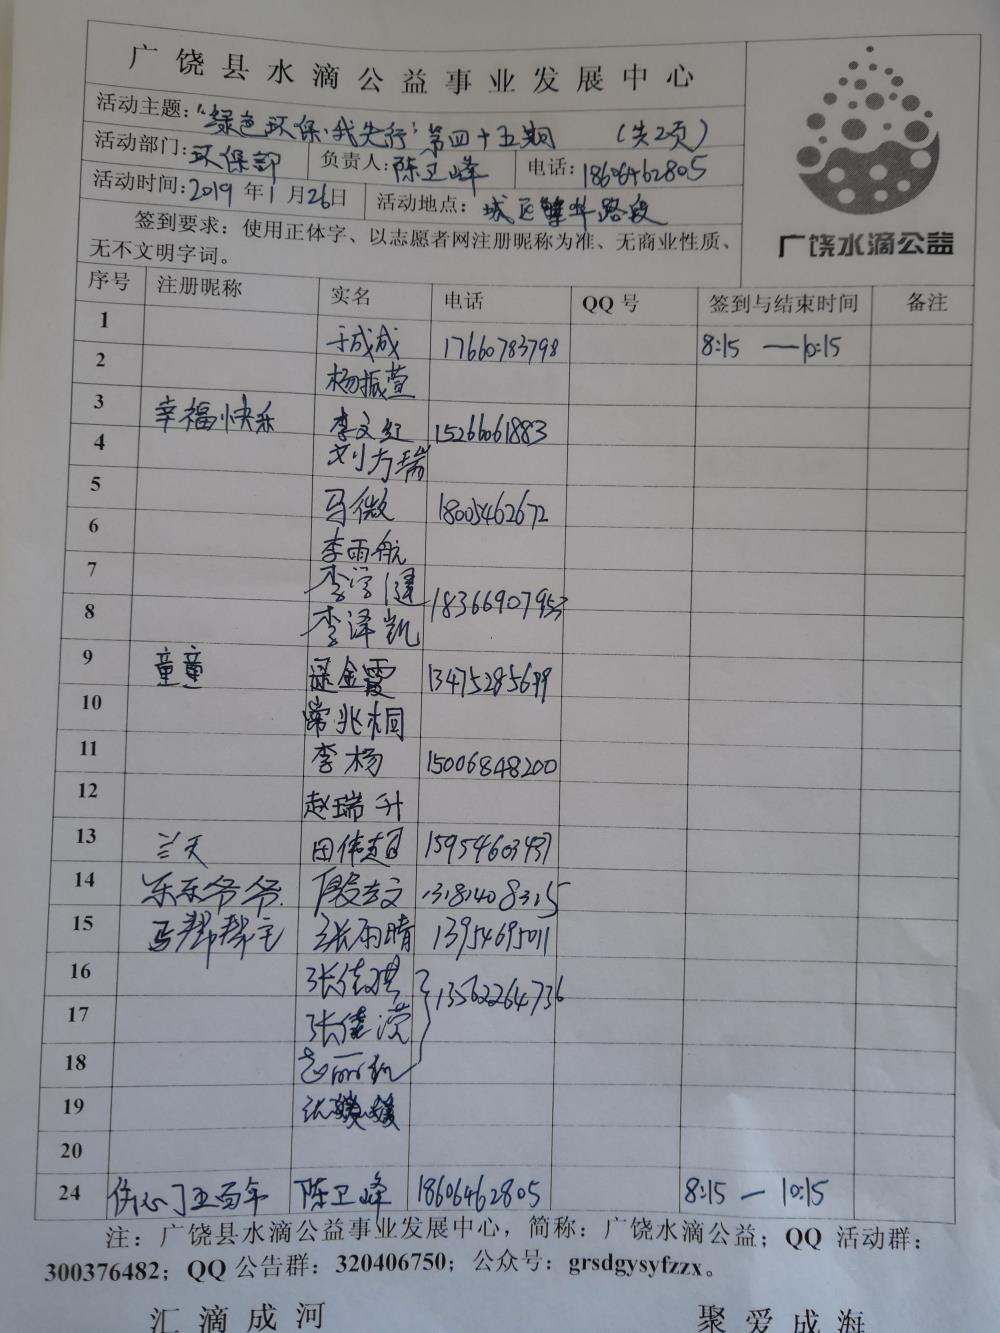 广饶县水滴公益事业发展中心
活动主题："绿色环保,我先行"第四十五期 (共2页)
活动部门:环保部 负责人:陈卫峰 电话:18606462805
活动时间:2019年1月26日 活动地点: 城区 路段
签到要求：使用正体字、以志愿者网注册昵称为准、无商业性质、
无不文明字词。
广饶水滴公益
序号 注册昵称 实名 电话 QQ号 签到与结束时间 备注
1 于成成 17660783798 8:15 — 10:15
2 杨振萱
3 幸福快乐 李文红 15266061883
4 刘方瑞
5 马微 18005462672
6 李雨航
7 李 18366907953
8 李泽凯
9 童童 金霞 13475285699
10 常兆桐
11 李杨 15006848200
12 赵瑞升
13 兰天 田伟超 15954603437
14 乐乐爷爷 文 13181408315
15 马帮帮主 张雨晴 13954695011
16 张佳琪 13562264736
17 张佳滢
18
19 张媛媛
20
24 五百年 陈卫峰 18606462805 8:15 — 10:15
注：广饶县水滴公益事业发展中心，简称：广饶水滴公益；QQ 活动群：
300376482；QQ 公告群：320406750；公众号：grsdgysyfzzx。
汇滴成河 聚爱成海